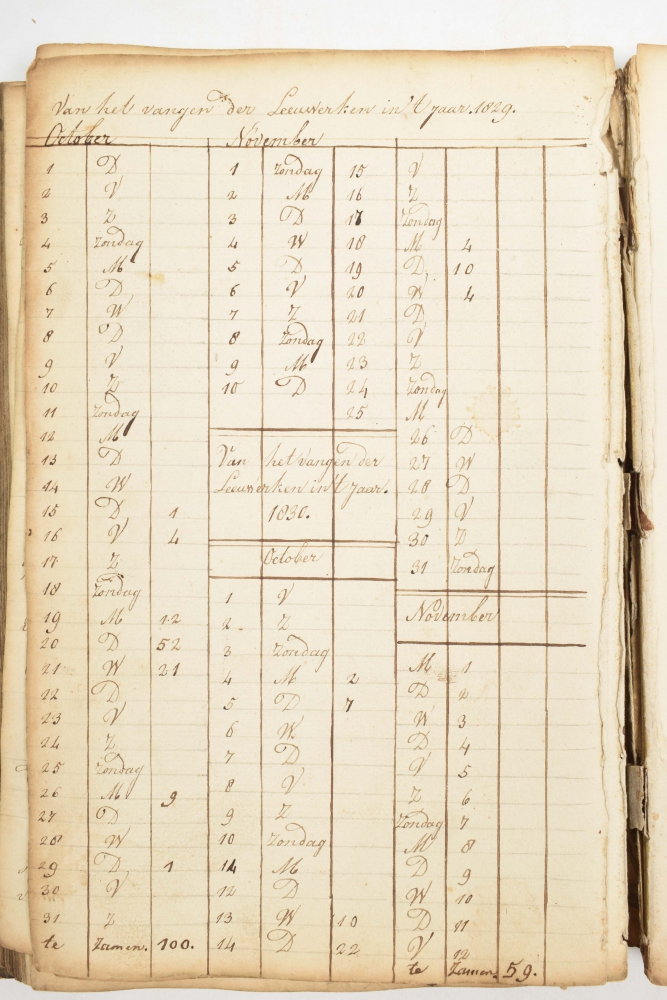 Van het vangen der Leeuwerken in 't jaar. 1829.
October
1 D
2 V
3 Z
4 Zondag
5 M
6 D
7 W
8 D
9 V
10 Z
11 Zondag
12 M
13 D
14 W
15 D 1
16 V 4
17 Z
18 Zondag
19 M 12
20 D 52
21 W 21
22 D
23 V
24 Z
25 Zondag
26 M 9
27 D
28 W
29 D 1
30 V
31 Z
te Zamen. 100.
November
1 Zondag
2 M
3 D
4 W
5 D
6 V
7 Z
8 Zondag
9 M
10 D
Van het vangen der
Leeuwerken in 't jaar.
1830.
October
1 V
2 Z
3 Zondag
4 M 2
5 D 7
6 W
7 D
8 V
9 Z
10 Zondag
11 M
12 D
13 W 10
14 D 22
15 V
16 Z
17 Zondag
18 M 4
19 D, 10
20 W 4
21 D
22 V
23 Z
24 Zondag
25 M
26 D
27 W
28 D
29 V
30 Z
31 Zondag
November
M 1
D 2
W 3
D 4
V 5
Z 6
Zondag 7
M 8
D 9
W 10
D 11
V 12
te Zamen. 59.